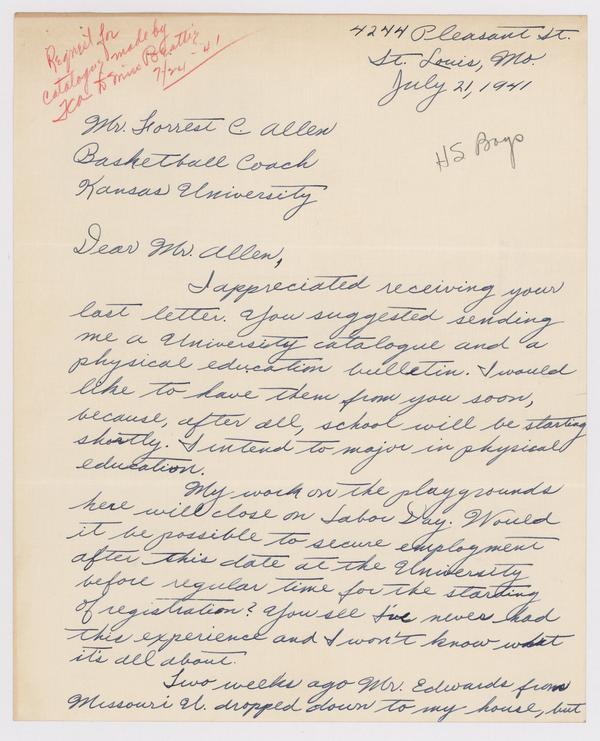 Request for
catalogue made by
FCA to Miss Beattie
7/24 41
4244 Pleasant St.
St. Louis, Mo.
July 21, 1941
HS Boys
Mr. Forrest C. Allen
Basketball Coach
Kansas University
Dear Mr. Allen,
I appreciated receiving your
last letter. You suggested sending
me a University catalogue and a
physical education bulletin. I would
like to have them from you soon,
because, after all, school will be starting
shortly. I intend to major in physical
education.
My work on the playgrounds
here will close on Labor Day. Would
it be possible to secure employment
after this date at the University
before regular time for the starting
of registration? You see I've never had
this experience and I won't know what
it's all about.
Two weeks ago Mr. Edwards from
Missouri U. dropped down to my house, but